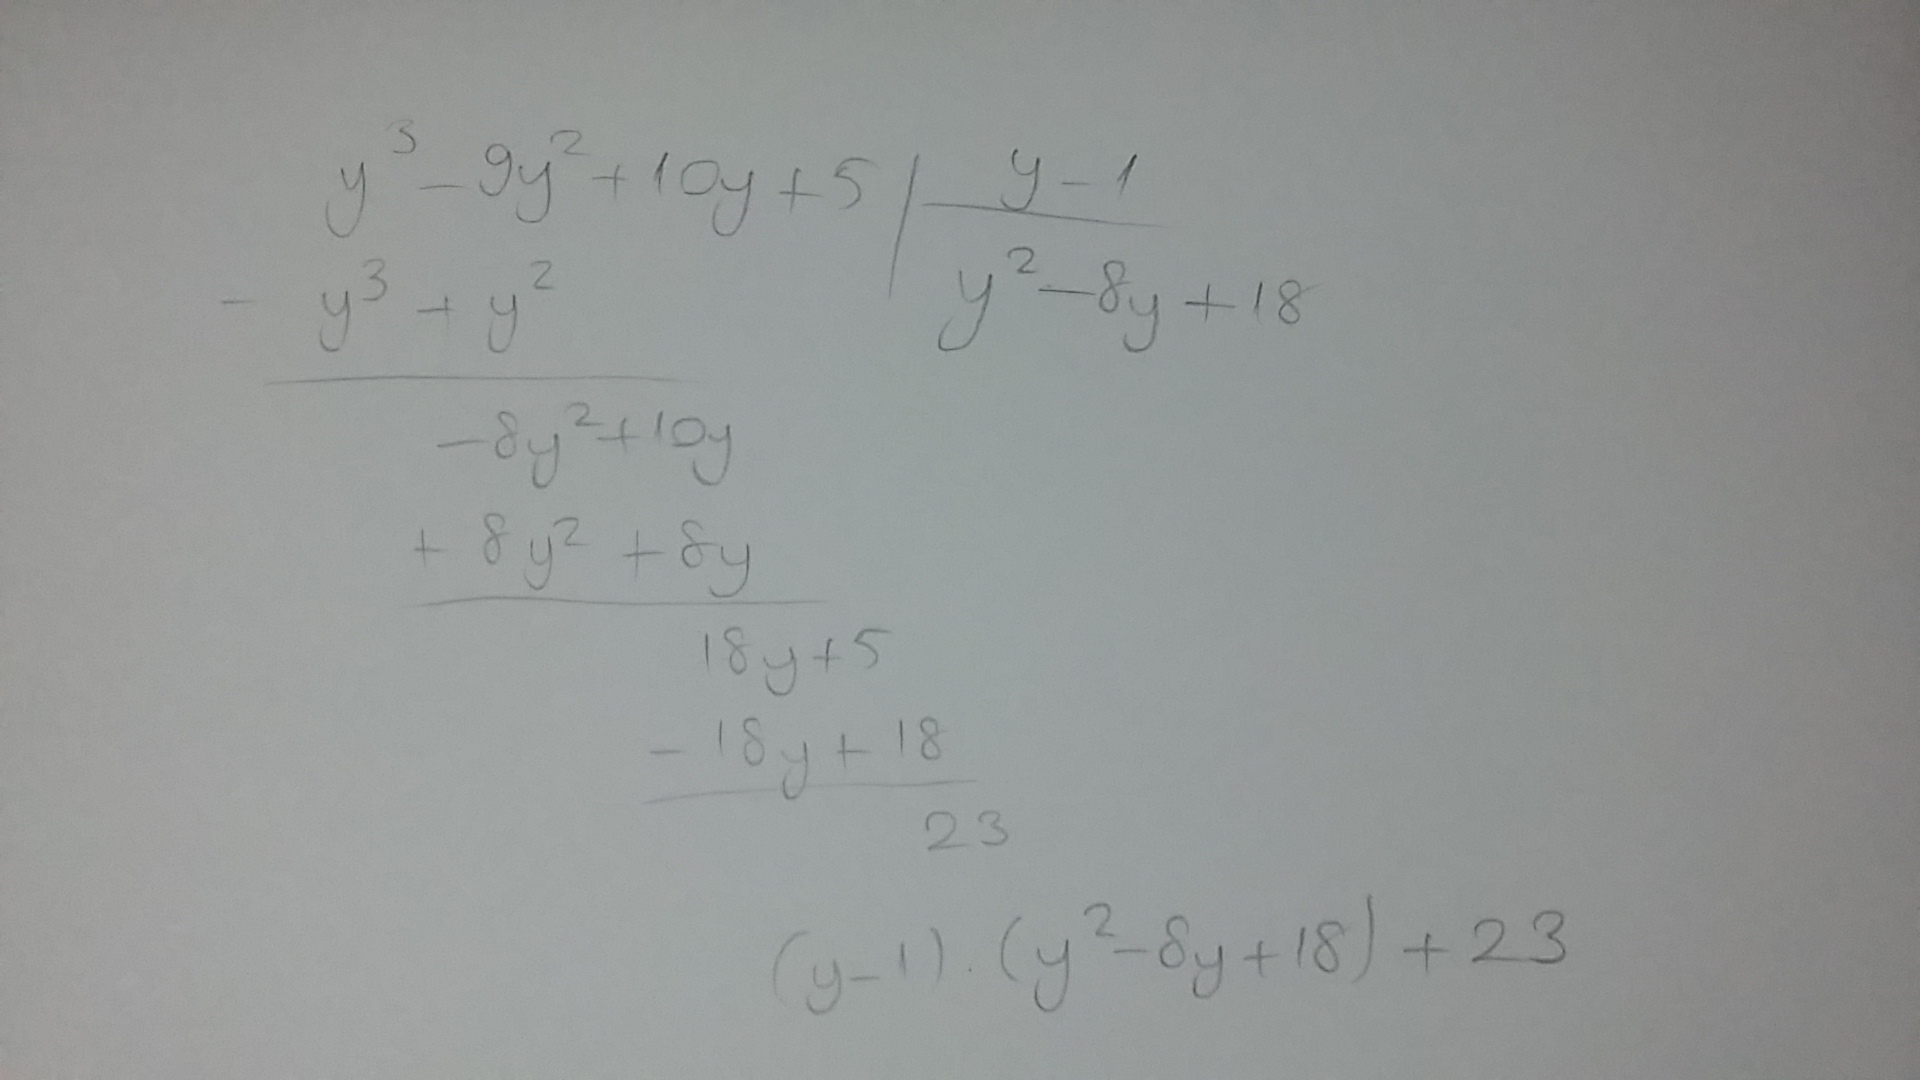 y³ - 9y² + 10y + 5 | y - 1
- y³ + y² y² - 8y + 18
- 8y² + 10y
+ 8y² + 8y
18y + 5
- 18y + 18
23
(y - 1) . (y² - 8y + 18) + 23